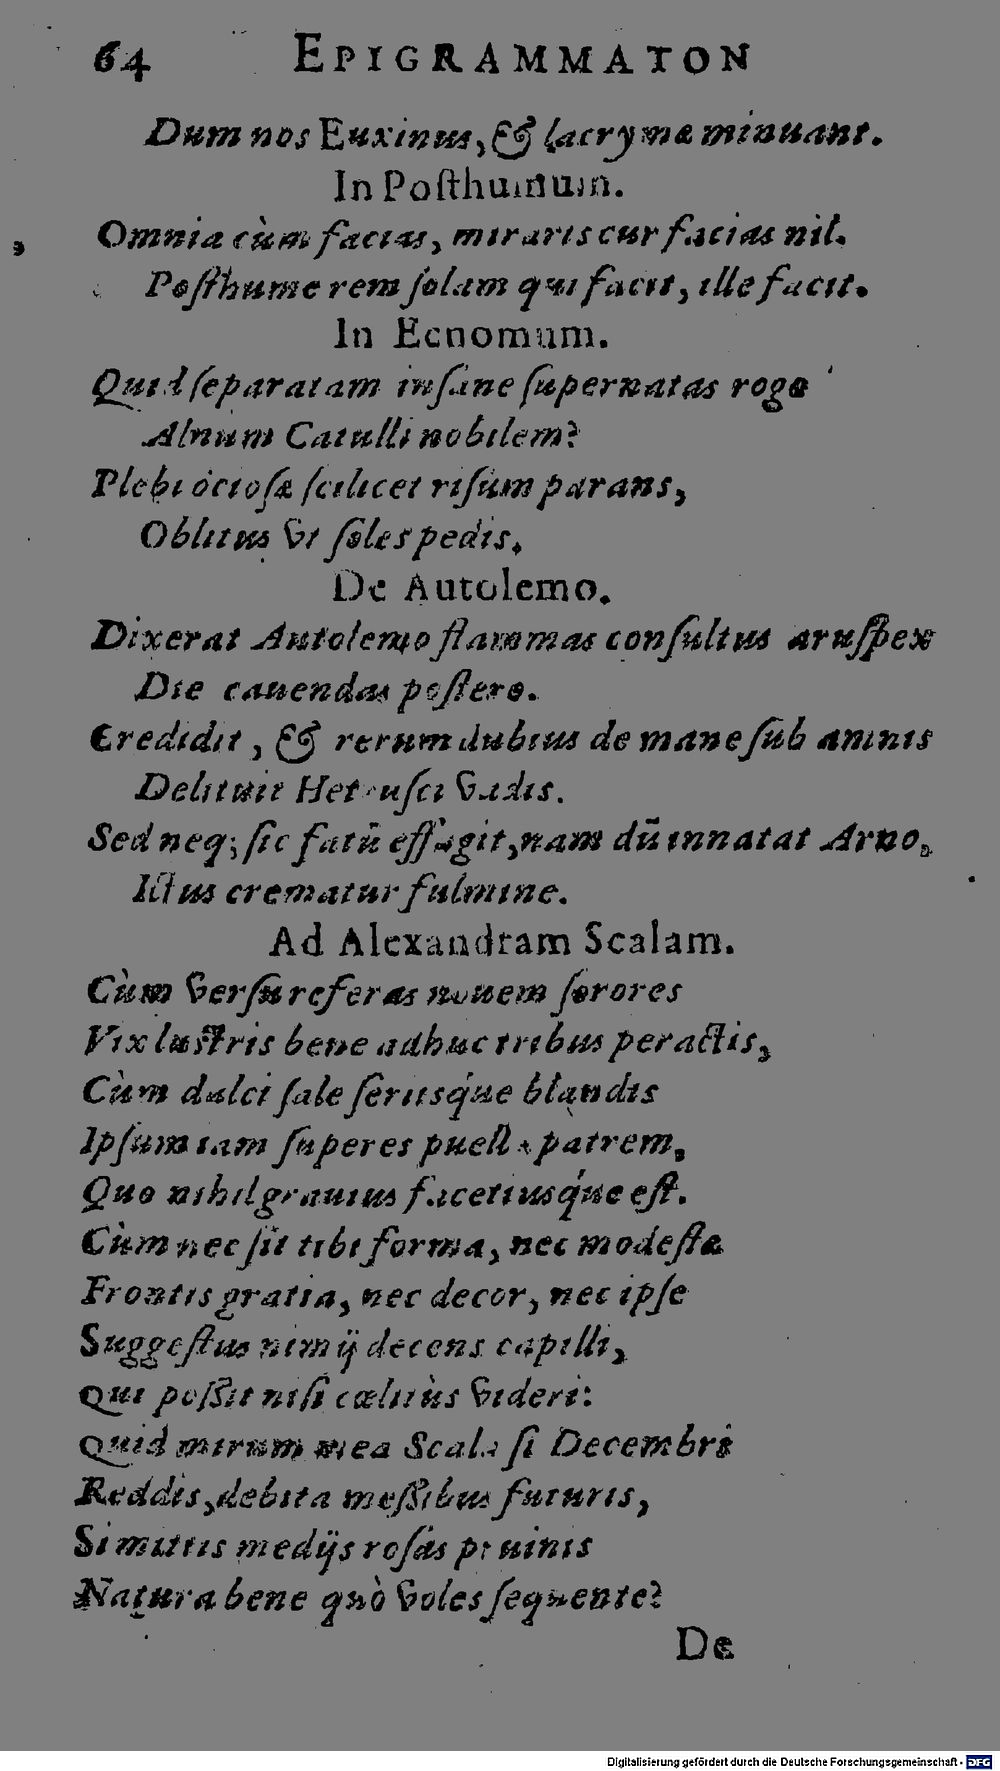 64 EPIGRAMMATON
Dum nos Euxinus, & lacrymæ minuant.
In Posthumum.
Omnia cùm facias, miraris cur facias nil.
Posthume rem solam qui facit, ille facit.
In Ecnomum.
Quid separatam insane supernatas roga
Alnum Catulli nobilem?
Plebi ociosæ scilicet risum parans,
Oblitus vt soles pedis.
De Autolemo.
Dixerat Autolemo flammas consultus aruspex
Die cauendas postero.
Credidit, & rerum dubius de mane sub amnis
Delituit Hetrusci vadis.
Sed neq; sic fatū effugit, nam dū innatat Arno,
Ictus crematur fulmine.
Ad Alexandram Scalam.
Cùm versu referas nouem sorores
Vix lustris bene adhuc tribus peractis,
Cùm dulci sale seriisq́ue blandis
Ipsum iam superes puella patrem,
Quo nihil grauius facetiusq́ue est.
Cùm nec sit tibi forma, nec modestæ
Frontis gratia, nec decor, nec ipse
Suggestus nimij decens capilli,
Qui possit nisi cœlitùs videri:
Quid mirum mea Scala si Decembri
Reddis, debita messibus futuris,
Si mittis medijs rosas pruinis
Natura bene quò voles sequente?
De
Digitalisierung gefördert durch die Deutsche Forschungsgemeinschaft - DFG